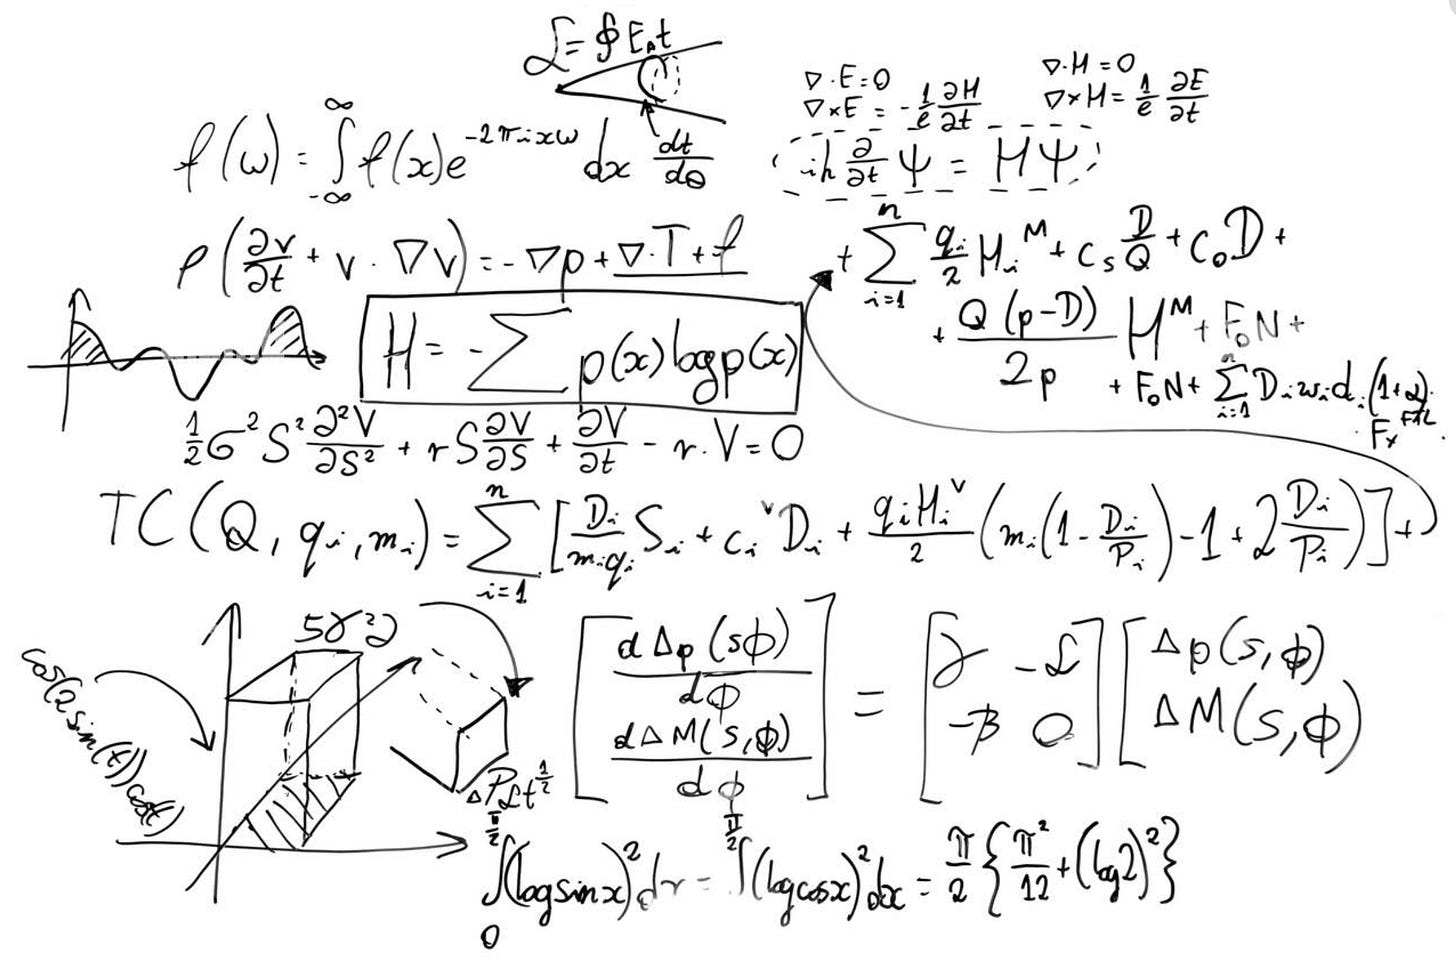 ℒ = ∮ E₀t
∇·E=0
∇·H=0
∇×E = -1/c ∂H/∂t
∇×H = 1/c ∂E/∂t
f(ω) = ∫_{-∞}^{∞} f(x)e^{-2πixω} dx
dt/dθ
iħ ∂/∂t Ψ = HΨ
ρ(∂v/∂t + v·∇v) = -∇p + ∇·T + f
+ Σ_{i=1}^{n} q_i/2 H_i^M + c_s D/Q + c₀D +
+ Q(p-D)/2p H^M + F₀N +
+ F₀N + Σ_{i=1}^{n} D_i w_i d_i (1+α)
F_x
H = -Σ p(x) log p(x)
1/2 σ² S² ∂²V/∂S² + rS ∂V/∂S + ∂V/∂t - r·V = 0
TC(Q, q_i, m_i) = Σ_{i=1}^{n} [D_i/(m_i q_i) S_i + c_i^v D_i + q_i H_i^v/2 (m_i(1 - D_i/P_i) - 1 + 2 D_i/P_i)] +
5γ²
cos(2sin(t))
[dΔp(sϕ)/dϕ
dΔM(s,ϕ)/dϕ] = [γ -ℒ
-β 0] [Δp(s,ϕ)
ΔM(s,ϕ)
ΔPℒt^{1/2}
∫_0^{π/2} (log sin x)² dx = ∫^{π/2} (log cos x)² dx = π/2 {π²/12 + (log 2)²}